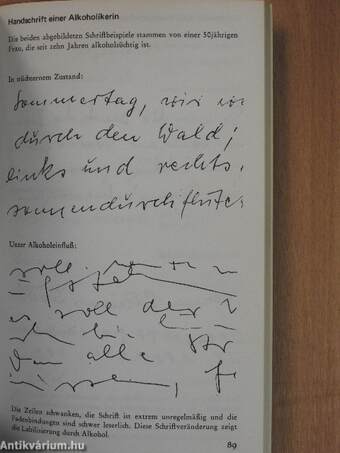 Handschrift einer Alkoholikerin
Die beiden abgebildeten Schriftbeispiele stammen von einer 50jährigen
Frau, die seit zehn Jahren alkoholsüchtig ist.
In nüchternem Zustand:
Sommertag, wir
durch den Wald;
links und rechts,
sonnendurchflute
Unter Alkoholeinfluß:
soll
soll der
alle
Die Zeilen schwanken, die Schrift ist extrem unregelmäßig und die
Fadenbindungen sind schwer leserlich. Diese Schriftveränderung zeigt
die Labilisierung durch Alkohol.
89
Antikvárium.hu